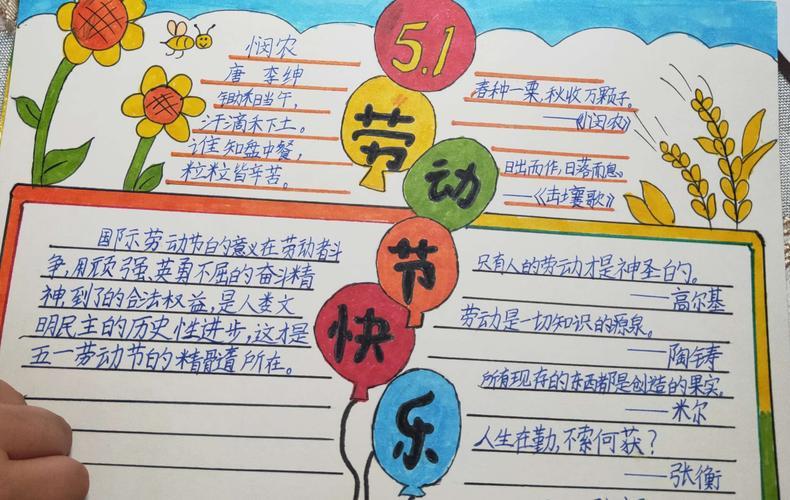 5.1
劳
动
节
快
乐
悯农
唐 李绅
锄禾日当午,
汗滴禾下土。
谁知盘中餐,
粒粒皆辛苦。
春种一粟,秋收万颗子。
——《悯农》
日出而作,日落而息。
——《击壤歌》
国际劳动节的意义在劳动者斗
争,用顽强、英勇不屈的奋斗精
神到了的合法权益,是人类文
明民主的历史性进步,这才是
五一劳动节的精髓所在。
只有人的劳动才是神圣的。
——高尔基
劳动是一切知识的源泉。
——陶铸
所有现存的东西都是创造的果实。
——米尔
人生在勤,不索何获?
——张衡